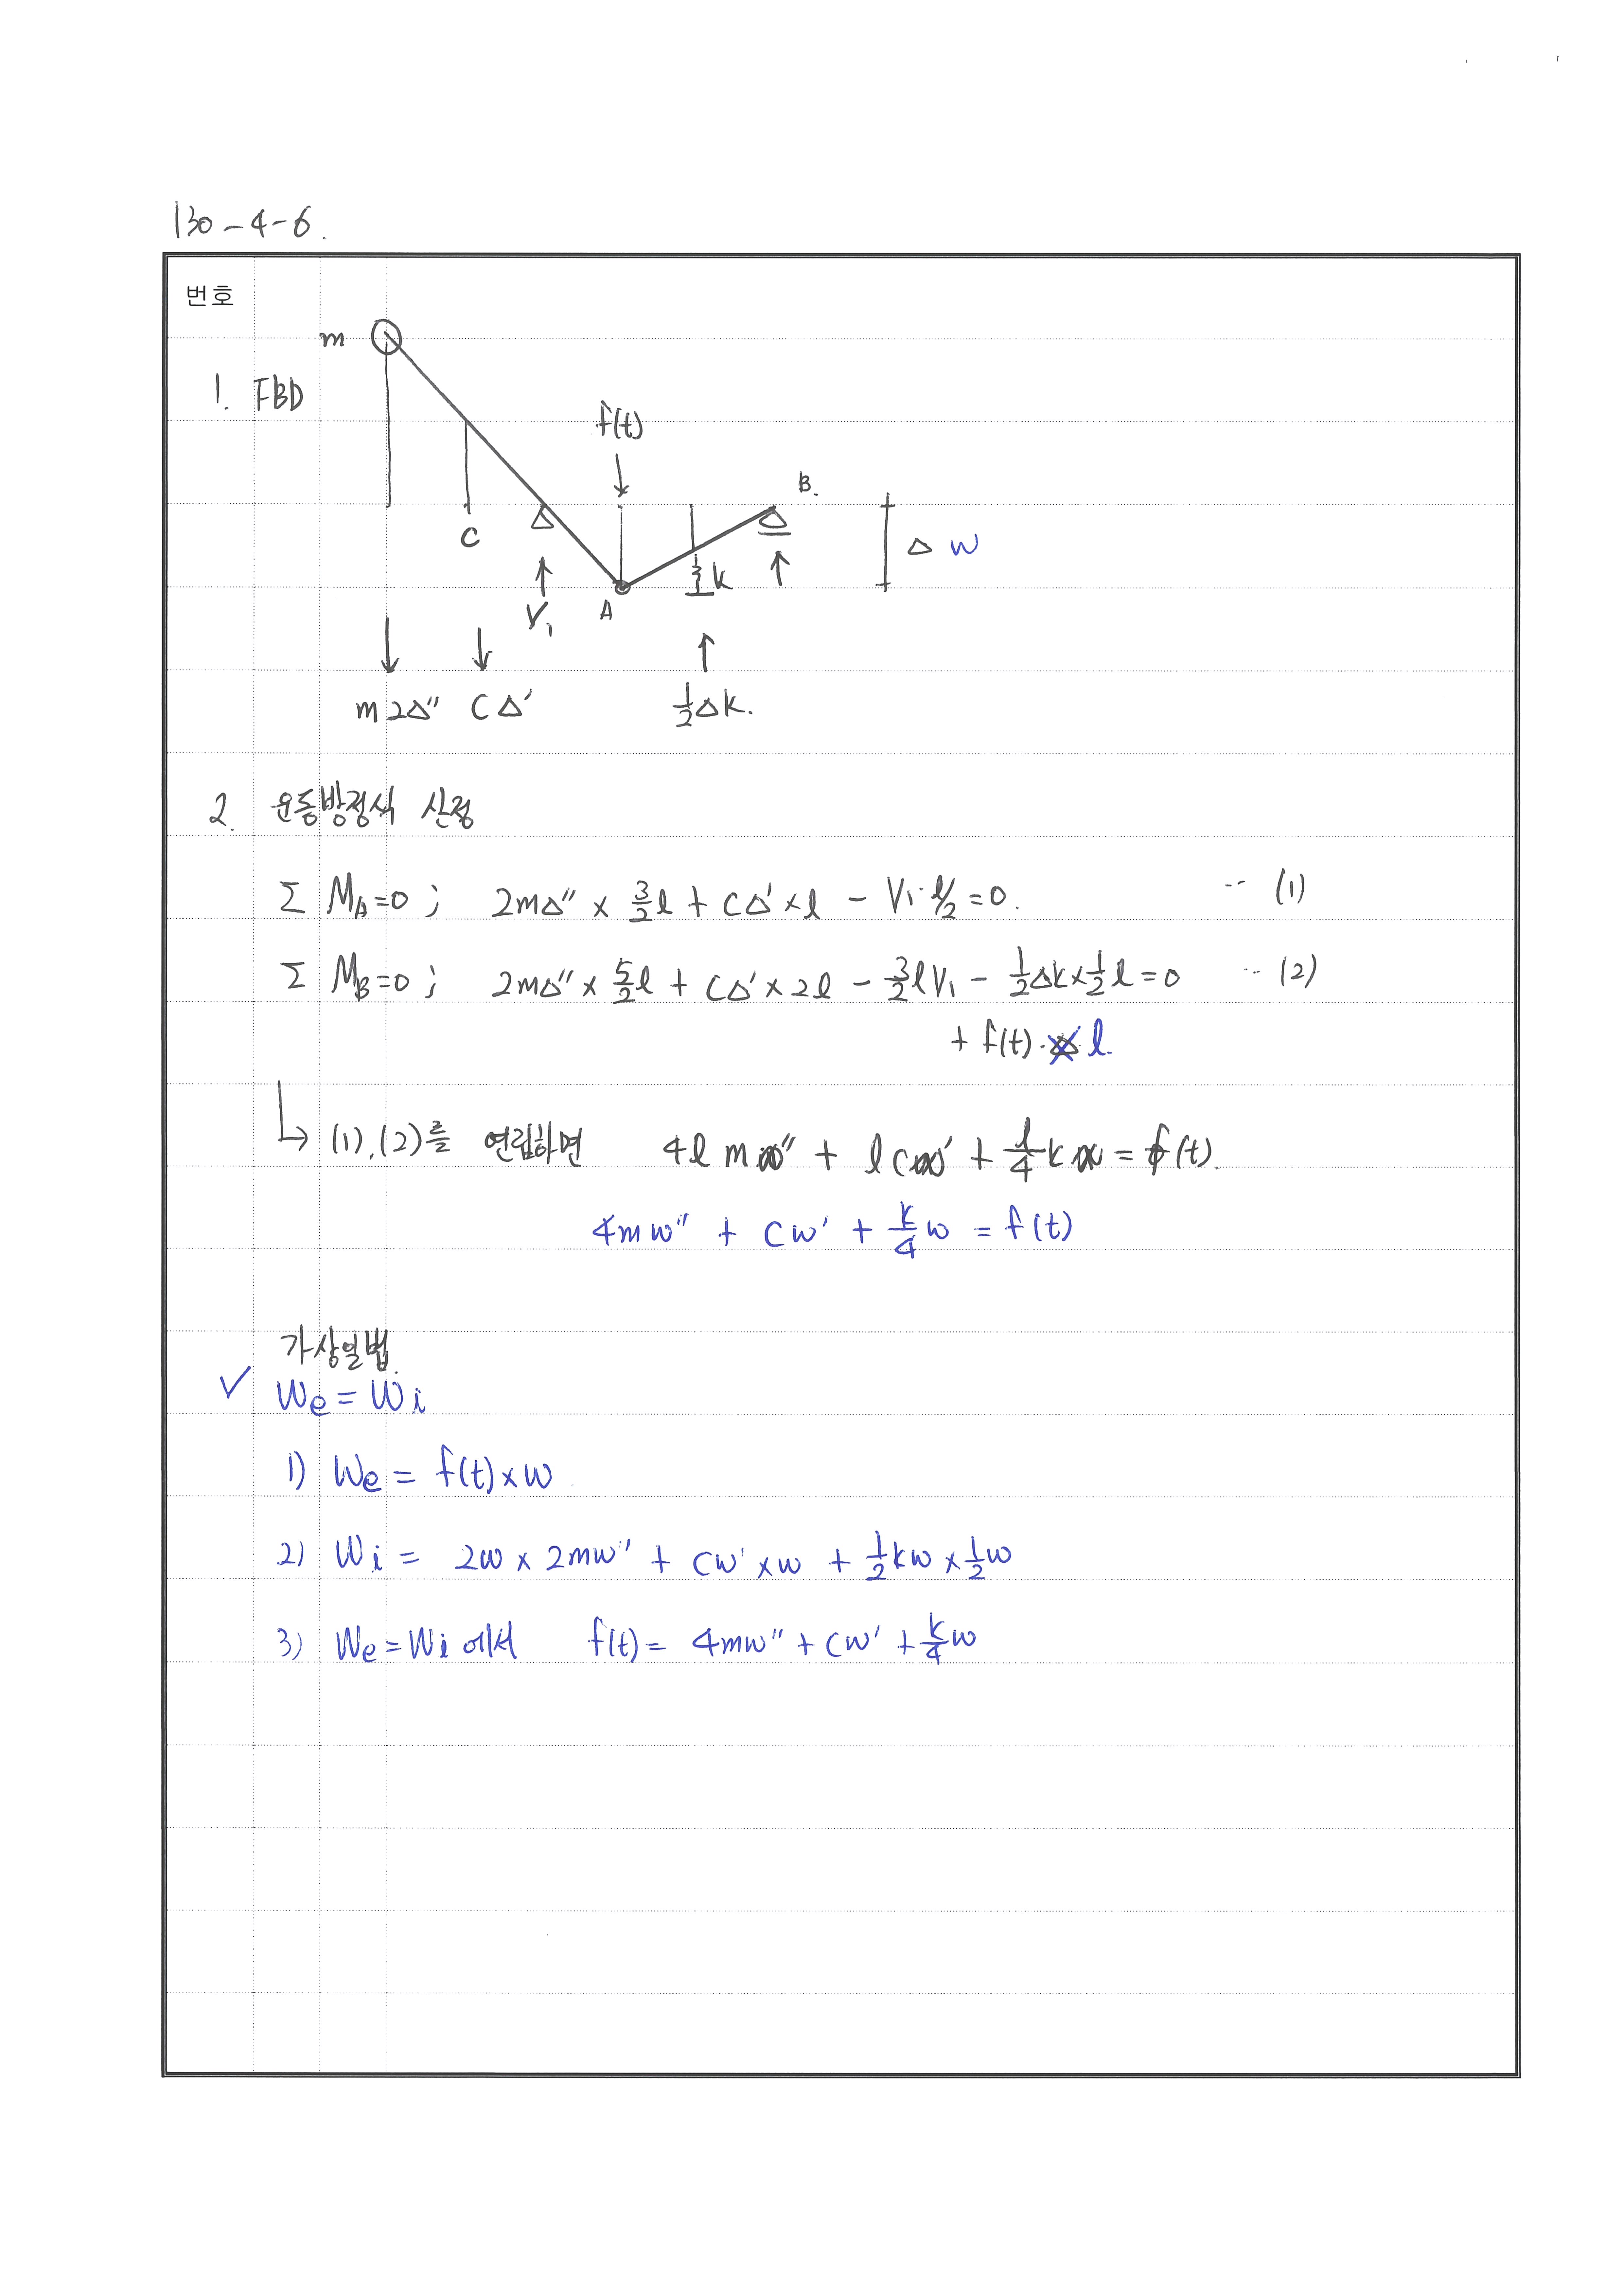 130-4-6.
번호
m
1. FBD
f(t)
B.
C
△ w
k
A
V₁
m2△″ C△′ ½△k.
2. 운동방정식 산정
Σ M_A=0 ; 2m△″ × 3/2 l + C△′×l - V₁·l/2 = 0. -- (1)
Σ M_B=0 ; 2m△″ × 5/2 l + C△′×2l - 3/2 l V₁ - ½△k×½l = 0 -- (2)
+ f(t)· l.
↳ (1), (2)를 연립하면 4l m w″ + l c w′ + l/4 k w = f(t).
4mw″ + cw′ + k/4 w = f(t)
가상일법.
✓ We = Wi
1) We = f(t)×w
2) Wi = 2w × 2mw″ + cw′×w + ½kw×½w
3) We=Wi 에서 f(t) = 4mw″ + cw′ + k/4 w